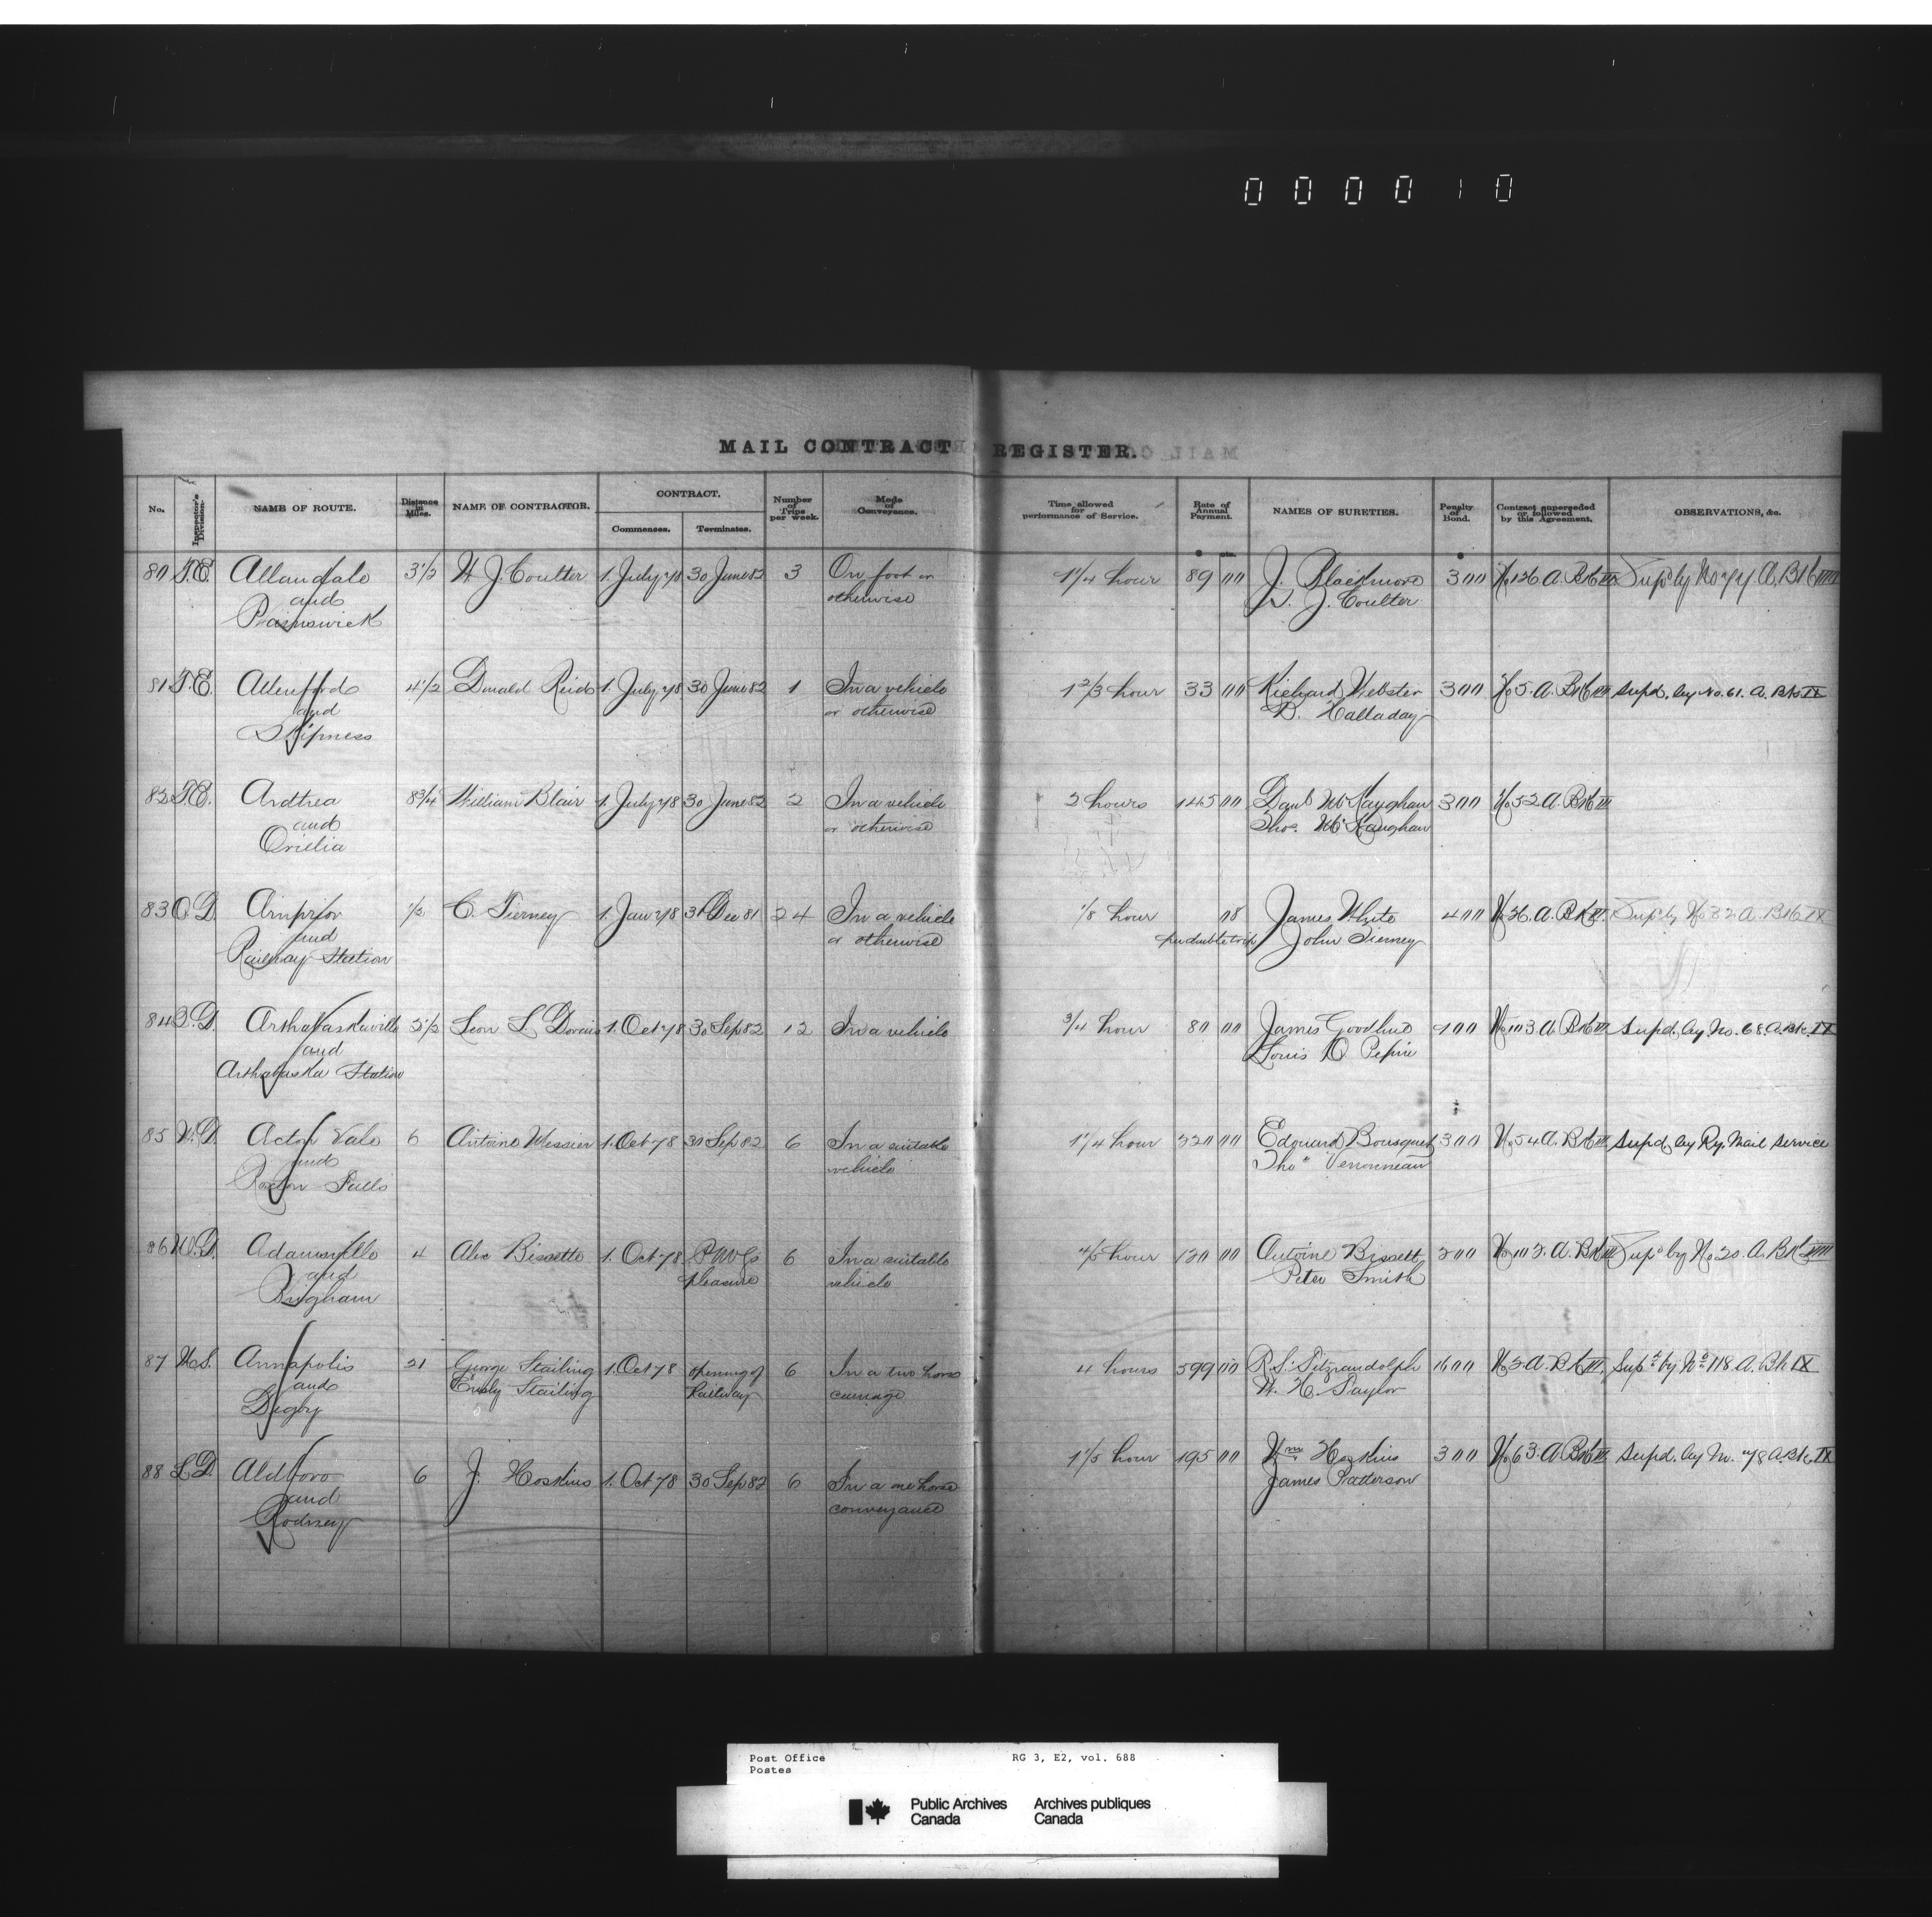 000010
MAIL CONTRACT REGISTER.
No. Inspector's Division. NAME OF ROUTE. Distance in Miles. NAME OF CONTRACTOR. CONTRACT. Commences. Terminates. Number of Trips per week. Mode of Conveyance. Time allowed for performance of Service. Rate of Annual Payment. NAMES OF SURETIES. Penalty of Bond. Contract superseded or followed by this Agreement. OBSERVATIONS, &c.
$ cts. $
80 T.E. Allandale 3 1/2 W. J. Coulter 1. July 78 30 June 82 3 On foot or 1 1/4 hour 89 00 J. Blackmore 300 No 126 A. Bk III Supd by No 77 A. Bk VIIII
and otherwise J. Coulter
Painswick
81 T.E. Allenford 4 1/2 Donald Reid 1. July 78 30 June 82 1 In a vehicle 1 2/3 hour 33 00 Richard Webster 300 No 5. A. Bk III Supd. by No. 61. A. Bk IX
and or otherwise B. Halladay
Skipness
82 T.E. Ardtrea 8 3/4 William Blair 1. July 78 30 June 82 2 In a vehicle 2 hours 145 00 Danl McKaughan 300 No 52 A. Bk III
and or otherwise Thos. McKaughan
Orillia
83 O.D. Arnprior 1/2 C. Tierney 1. Jan 78 31 Dec 81 24 In a vehicle 1/8 hour 08 James White 400 No 26. A. Bk III. Supd by No 82 A. Bk IX
and or otherwise per double trip John Tierney
Railway Station
84 Q.D. Arthabaskaville 2 1/2 Leon L. 1. Oct 78 30 Sep 82 12 In a vehicle 3/4 hour 80 00 James Goodhue No 103 A. Bk III Supd. by No. 68 A. Bk. IX
and Louis O Pepin
Arthabaska Station
85 M.D. Acton Vale 6 Antoine Messier 1. Oct 78 30 Sep 82 6 In a suitable 1 1/4 hour 220 00 Edouard Bousquet 300 No 54 A. Bk III Supd. by Ry. Mail Service
and vehicle Thos
Roxton Falls
86 M.D. Adamsville 4 Alex Bissette 1. Oct 78 P.M.G's 6 In a suitable 4/5 hour 120 00 Antoine Bissett 200 No 102. A. Bk III Supd by No 20. A. Bk VIIII
and pleasure vehicle Peter Smith
Brigham
87 N.S. Annapolis 21 George Stailing 1. Oct 78 opening of 6 In a two horse 4 hours 599 00 R. S. Fitzrandolph 1600 No 2. A. Bk III. Supd by No 118. A. Bk IX
and Stailing Railway carriage W. H. Taylor
Digby
88 L.D. Aldboro 6 J. Hoskins 1. Oct 78 30 Sep 82 6 In a one horse 1 1/5 hour 195 00 Wm Hoskins 300 No 63. A Bk III Supd. by No. 78 A. Bk. IX
and conveyance James Patterson
Rodney
Post Office RG 3, E2, vol. 688
Postes
Public Archives Archives publiques
Canada Canada